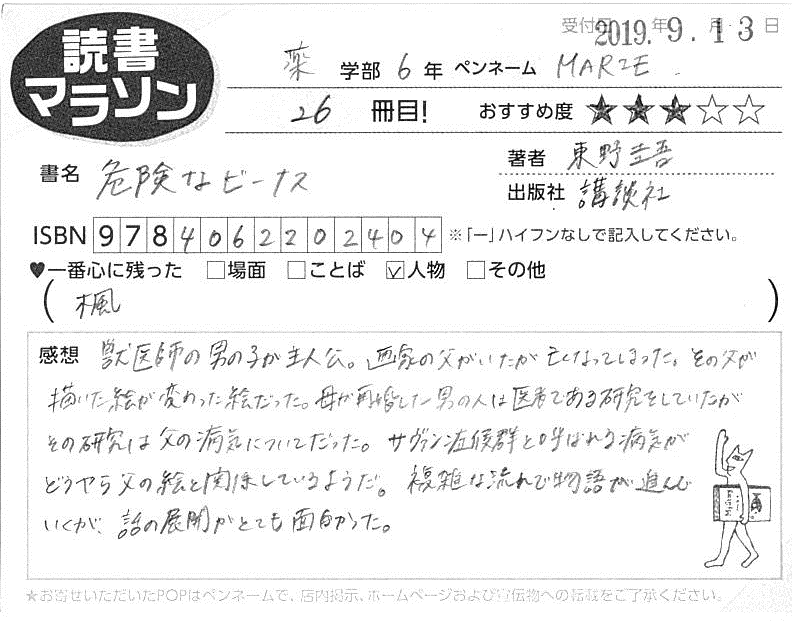 読書
マラソン
受付日 2019年 9月 13日
薬 学部 6 年 ペンネーム MARIE
26 冊目! おすすめ度 ★★★☆☆
書名 危険なビーナス
著者 東野圭吾
出版社 講談社
ISBN 9784062202404 ※「ー」ハイフンなしで記入してください。
♥一番心に残った □場面 □ことば ☑人物 □その他
( 楓 )
感想 獣医師の男の子が主人公。画家の父がいたが亡くなってしまった。その父が
描いた絵が変わった絵だった。母が再婚した男の人は医者である研究をしていたが
その研究は父の病気についてだった。サヴァン症候群と呼ばれる病気が
どうやら父の絵と関係しているようだ。複雑な流れで物語が進んで
いくが、話の展開がとても面白かった。
★お寄せいただいたPOPはペンネームで、店内掲示、ホームページおよび宣伝物への転載をご了承ください。